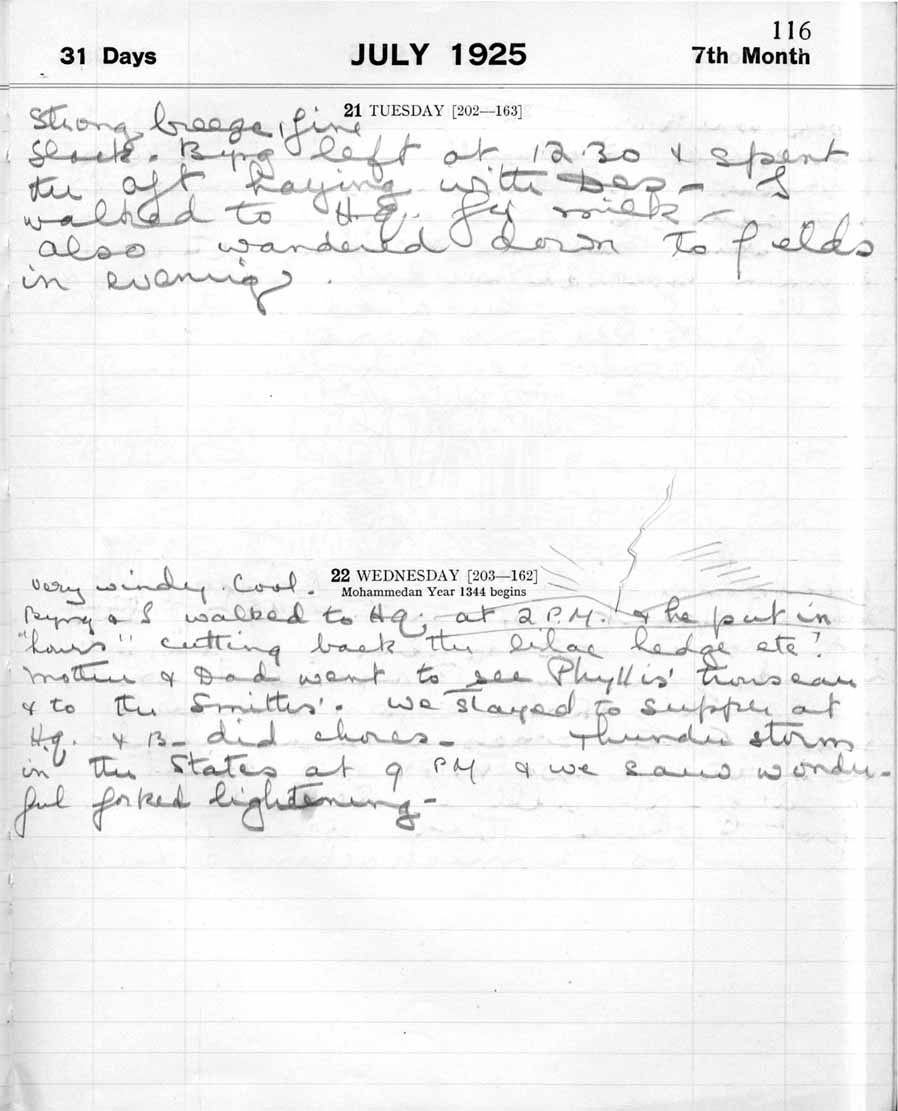 116
31 Days JULY 1925 7th Month
21 TUESDAY [202—163]
Strong breeze, fine
Slack. Byng left at 12.30 & spent
the aft haying with Des - I
walked to H.Q. for milk -
also wandered down to fields
in evening.
22 WEDNESDAY [203—162]
Mohammedan Year 1344 begins
Very windy. Cool.
Byng & I walked to HQ. at 2 P.M. & he put in
"hours" cutting back the lilac hedge etc!
Mother & Dad went to see Phyllis' trouseau
& to the Smiths'. We stayed to supper at
H.Q. & B- did chores - Thunder storm
in the States at 9 PM & we saw wonder-
ful forked lightening -